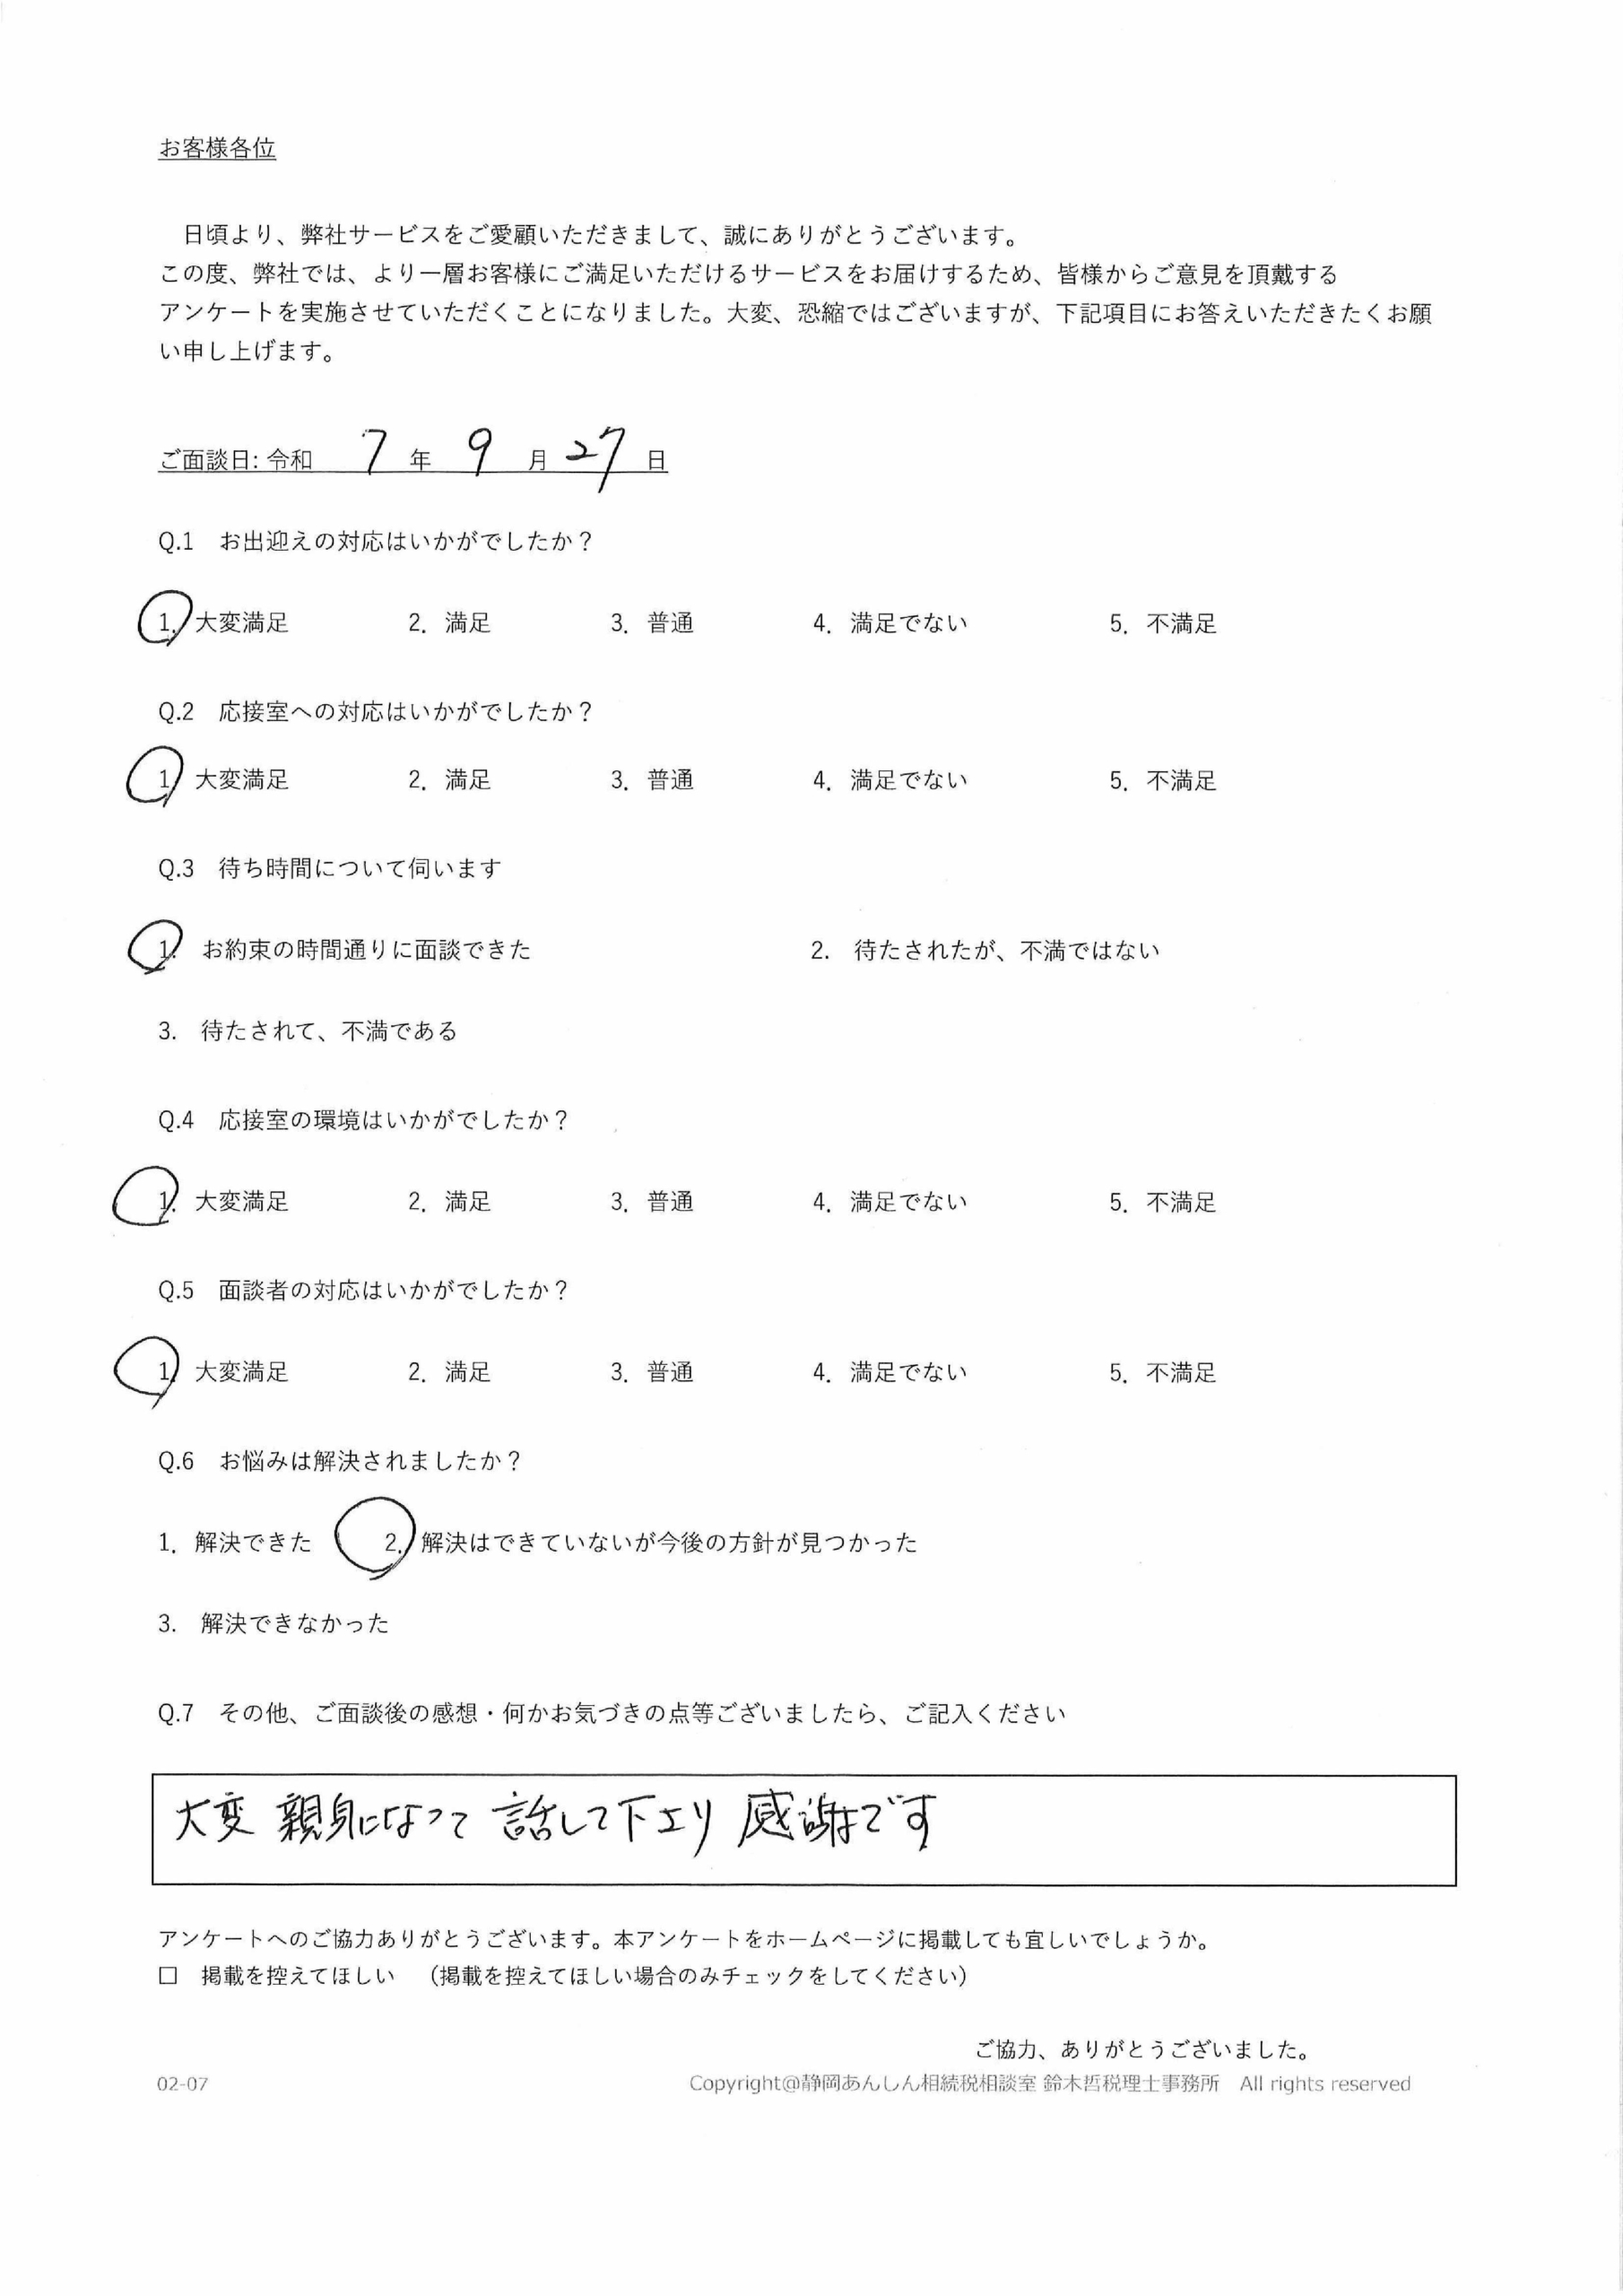 お客様各位
日頃より、弊社サービスをご愛顧いただきまして、誠にありがとうございます。
この度、弊社では、より一層お客様にご満足いただけるサービスをお届けするため、皆様からご意見を頂戴する
アンケートを実施させていただくことになりました。大変、恐縮ではございますが、下記項目にお答えいただきたくお願
い申し上げます。
ご面談日: 令和 7 年 9 月 27 日
Q.1 お出迎えの対応はいかがでしたか？
1. 大変満足 2. 満足 3. 普通 4. 満足でない 5. 不満足
Q.2 応接室への対応はいかがでしたか？
1. 大変満足 2. 満足 3. 普通 4. 満足でない 5. 不満足
Q.3 待ち時間について伺います
1. お約束の時間通りに面談できた 2. 待たされたが、不満ではない
3. 待たされて、不満である
Q.4 応接室の環境はいかがでしたか？
1. 大変満足 2. 満足 3. 普通 4. 満足でない 5. 不満足
Q.5 面談者の対応はいかがでしたか？
1. 大変満足 2. 満足 3. 普通 4. 満足でない 5. 不満足
Q.6 お悩みは解決されましたか？
1. 解決できた 2. 解決はできていないが今後の方針が見つかった
3. 解決できなかった
Q.7 その他、ご面談後の感想・何かお気づきの点等ございましたら、ご記入ください
大変 親身になって 話して下エり 感謝です
アンケートへのご協力ありがとうございます。本アンケートをホームページに掲載しても宜しいでしょうか。
□ 掲載を控えてほしい （掲載を控えてほしい場合のみチェックをしてください）
ご協力、ありがとうございました。
02-07 Copyright@静岡あんしん相続税相談室 鈴木哲税理士事務所 All rights reserved